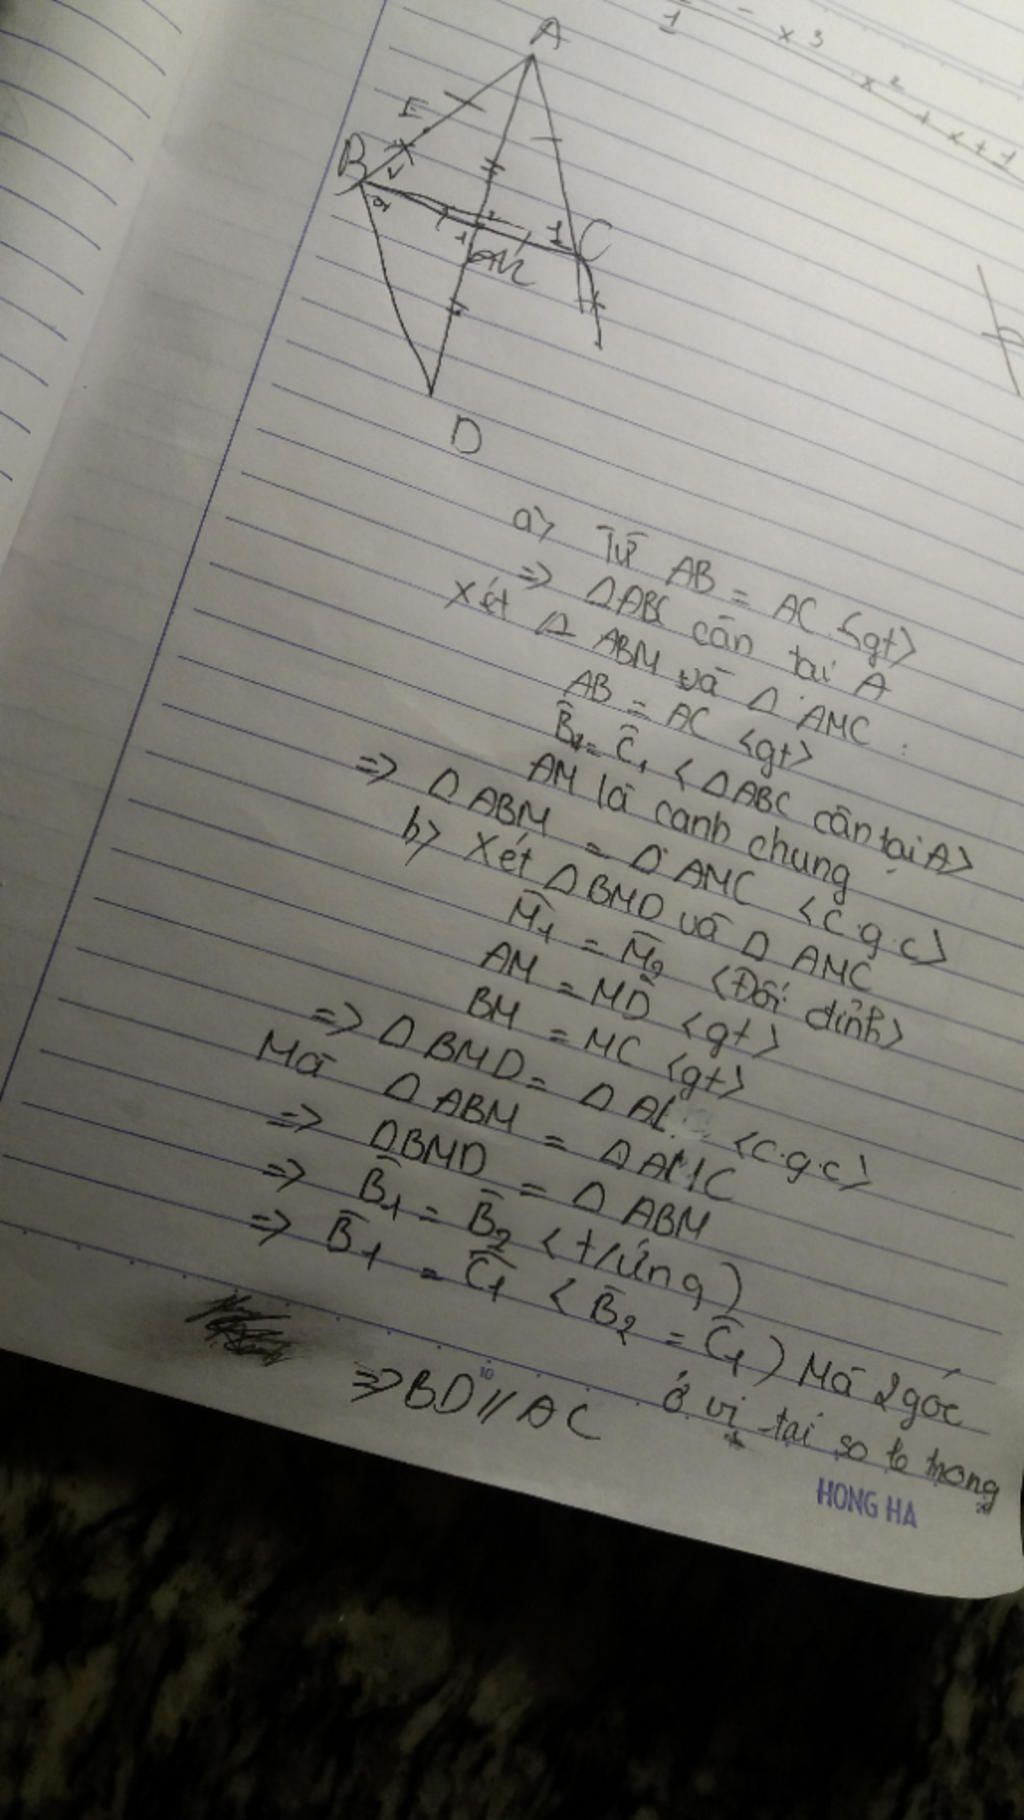 1 - x3
x2 + x + 1
A
E
B
2
1
C
M
D
a> Từ AB = AC <gt>
=> △ABC cân tại A
Xét △ ABM và △ AMC :
AB = AC <gt>
B̂2 = Ĉ1 < △ABC cân tại A>
AM là cạnh chung
=> △ ABM = △ AMC <c.g.c>
b> Xét △ BMD và △ AMC
M̂1 = M̂2 <Đối đỉnh>
AM = MD <gt>
BM = MC <gt>
=> △ BMD = △ A <c.g.c>
Mà △ ABM = △ AMC
=> △BMD = △ ABM
=> B̂1 = B̂2 < t/ứng)
=> B̂1 = Ĉ1 < B̂2 = Ĉ1 ) Mà 2 góc
ở vị tại so le trong
=> BD // AC
10
HONG HA